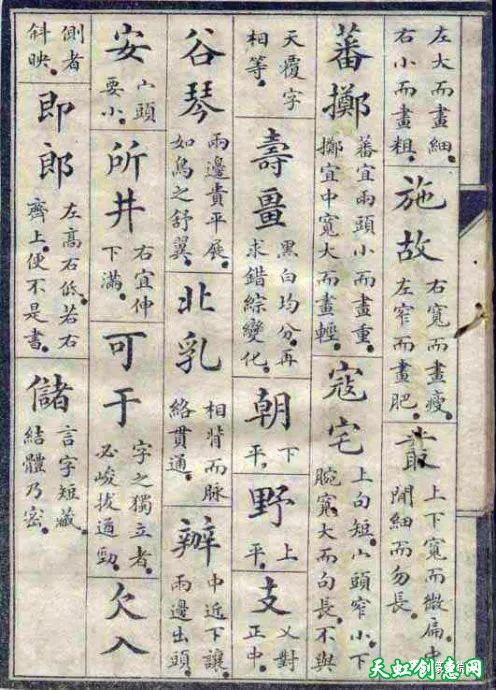 左大而畫細
右小而畫粗
施故
右寬而畫瘦
左窄而畫肥
叢
上下寬而微扁中
間細而勿長
蕃擲
蕃宜兩頭小而畫重
擲宜中寬大而畫輕
寇宅
上勾短宀頭窄小下
腕寬大而勾長不與
天覆字
相等
壽畺
黑白均分再
求錯綜變化
朝
下
平
野
上
平
支
乂對
正中
谷琴
兩邊貴平展
如鳥之舒翼
北乳
相背而脉
絡貫通
辦
中近下讓
兩邊出頭
安
宀頭
要小
所井
右宜伸
下滿
可于
字之獨立者
必峻拔遒勁
欠入
側者
斜映
即郎
左高右低若右
齊上便不是書
儲
言字短藏
結體乃密
天虹创意网